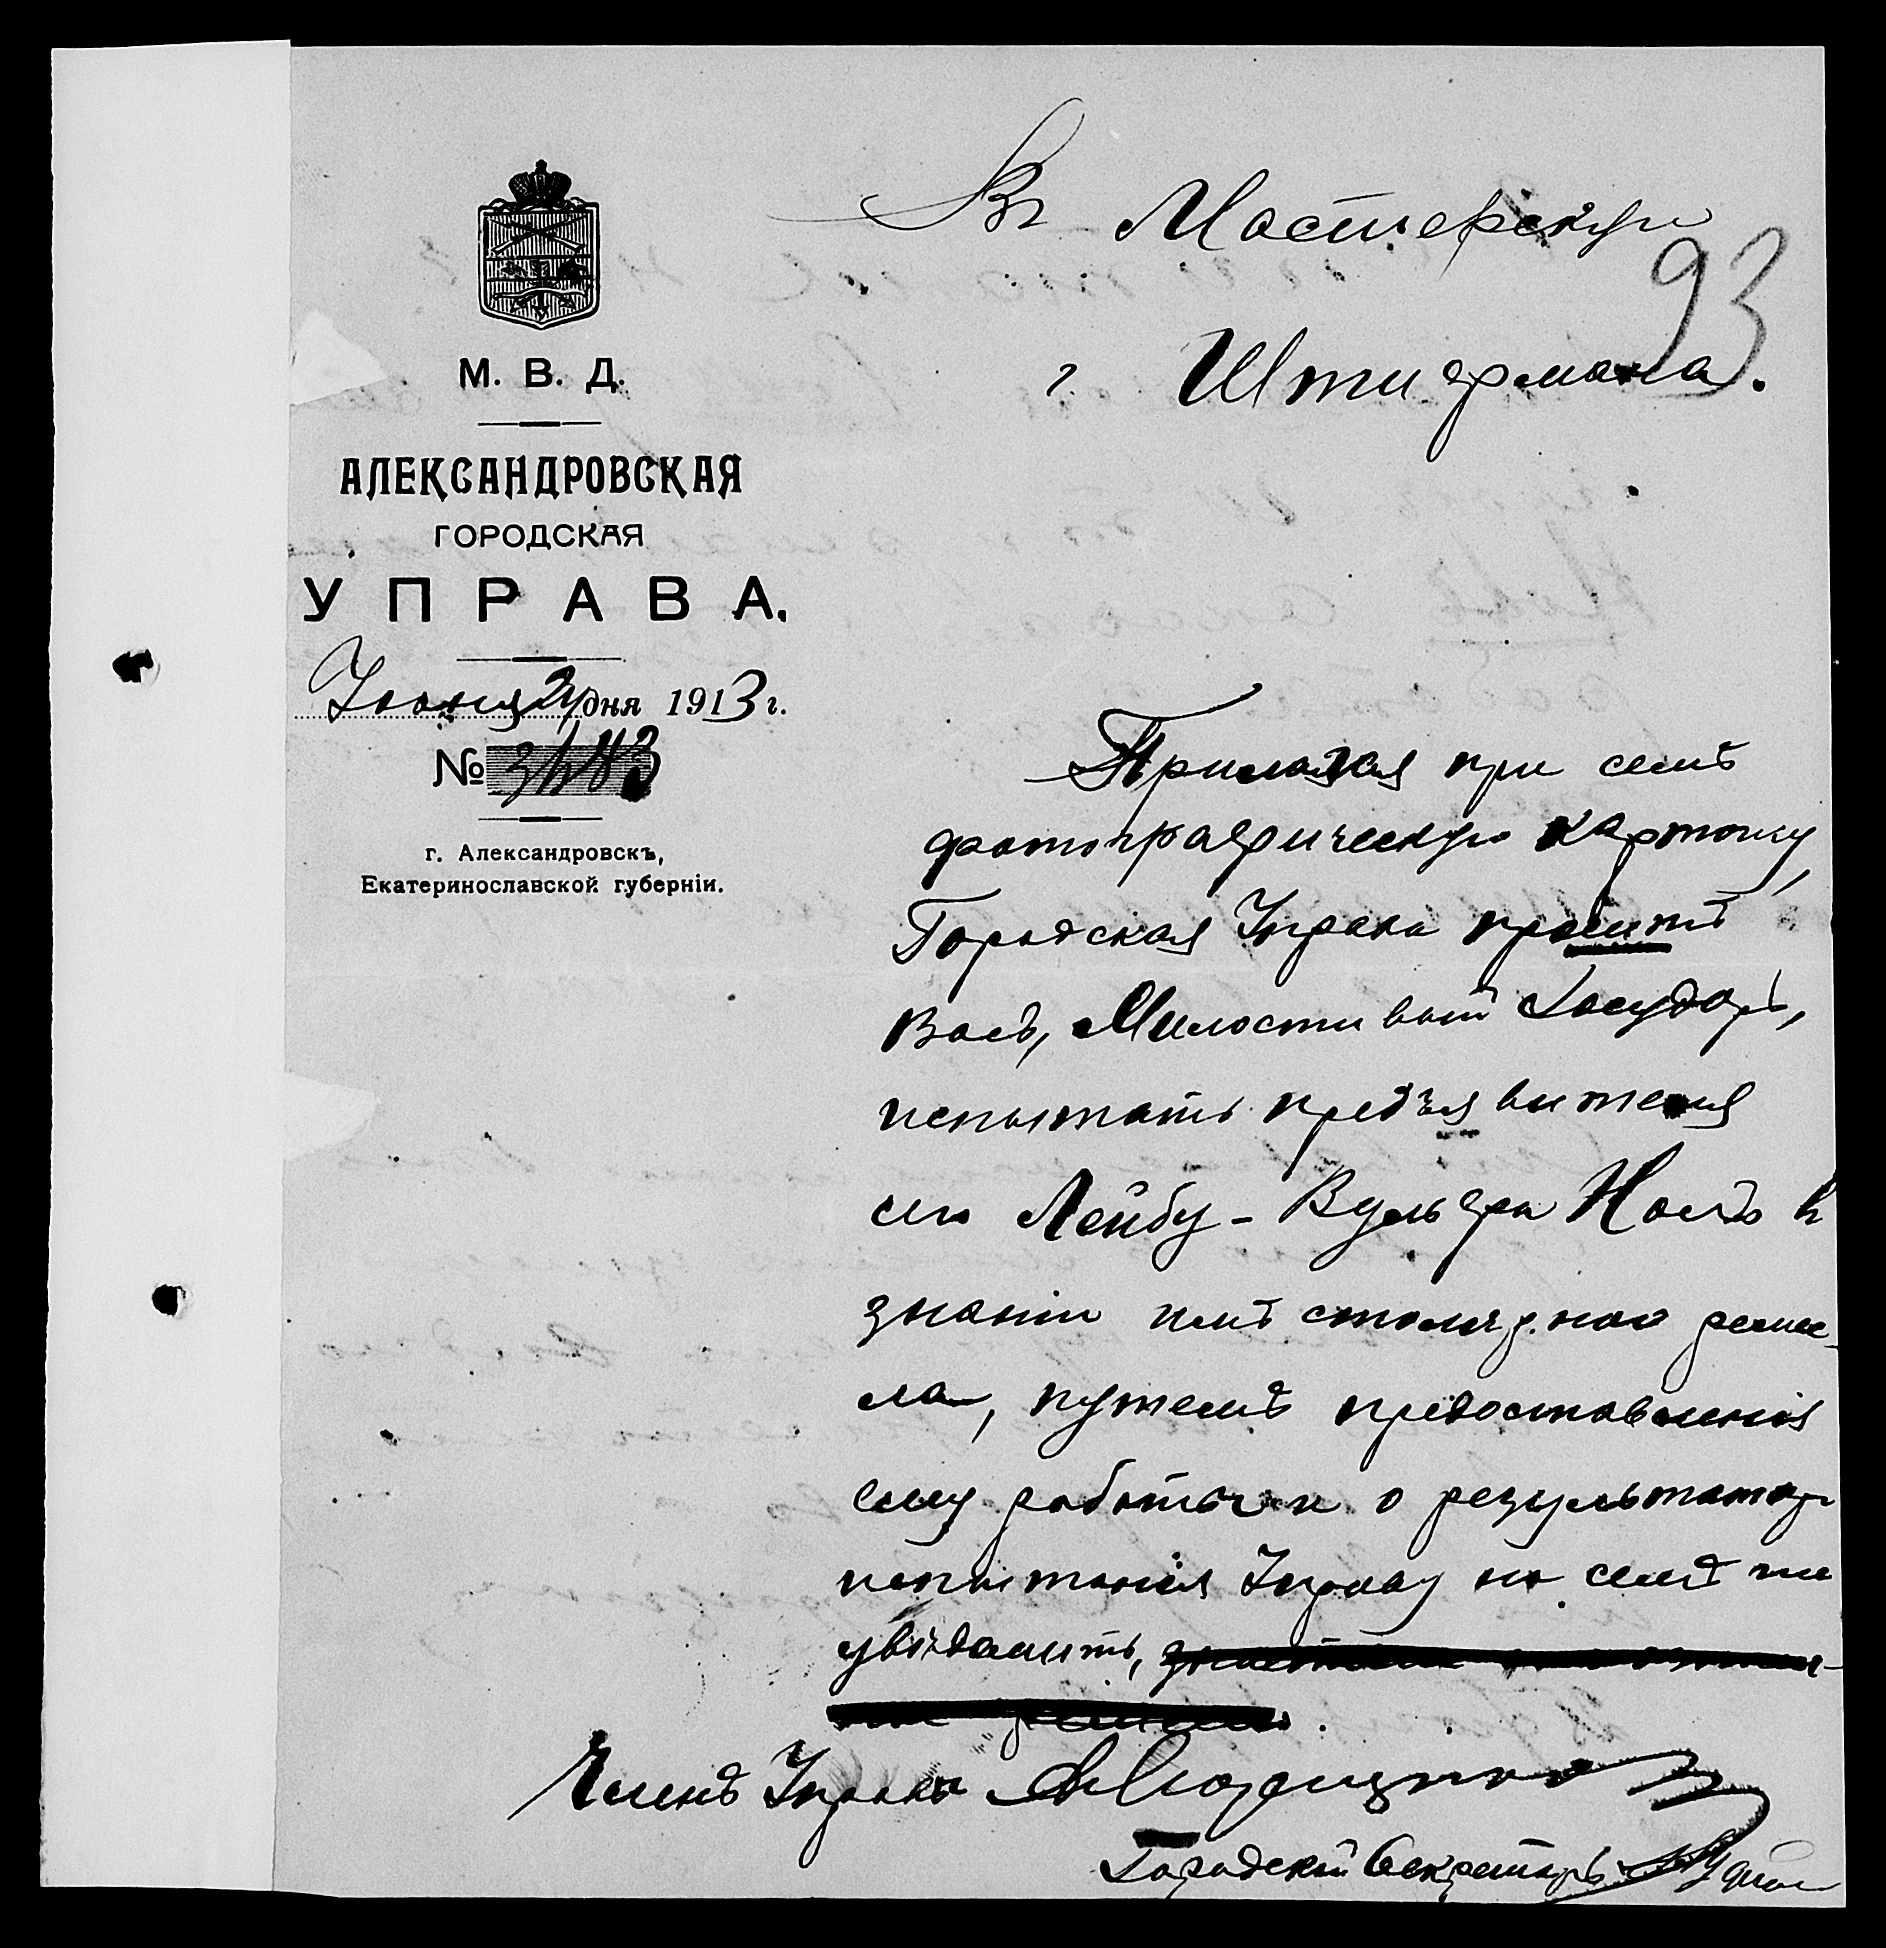 Въ Мастерскую
93
г. Штифмана.
М. В. Д.
АЛЕКСАНДРОВСКАЯ
ГОРОДСКАЯ
УПРАВА.
Іюня дня 1913 г.
№ 3483
г. Александровскъ,
Екатеринославской губерніи.
Прилагая при семъ
фотографическую карточку,
Городская Управа проситъ
Васъ, Милостивый Государь,
испытать предъявителя
сего Лейбу-Вульфа Ноель въ
знаніи имъ столярнаго ремес-
ла, путемъ предоставленія
ему работы и о результатахъ
испытанія Управу на семъ же
увѣдомить,
Членъ Управы
Городской Секретарь